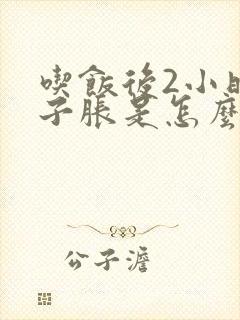 喫飯後2小時
子脹是怎麼
公子澹